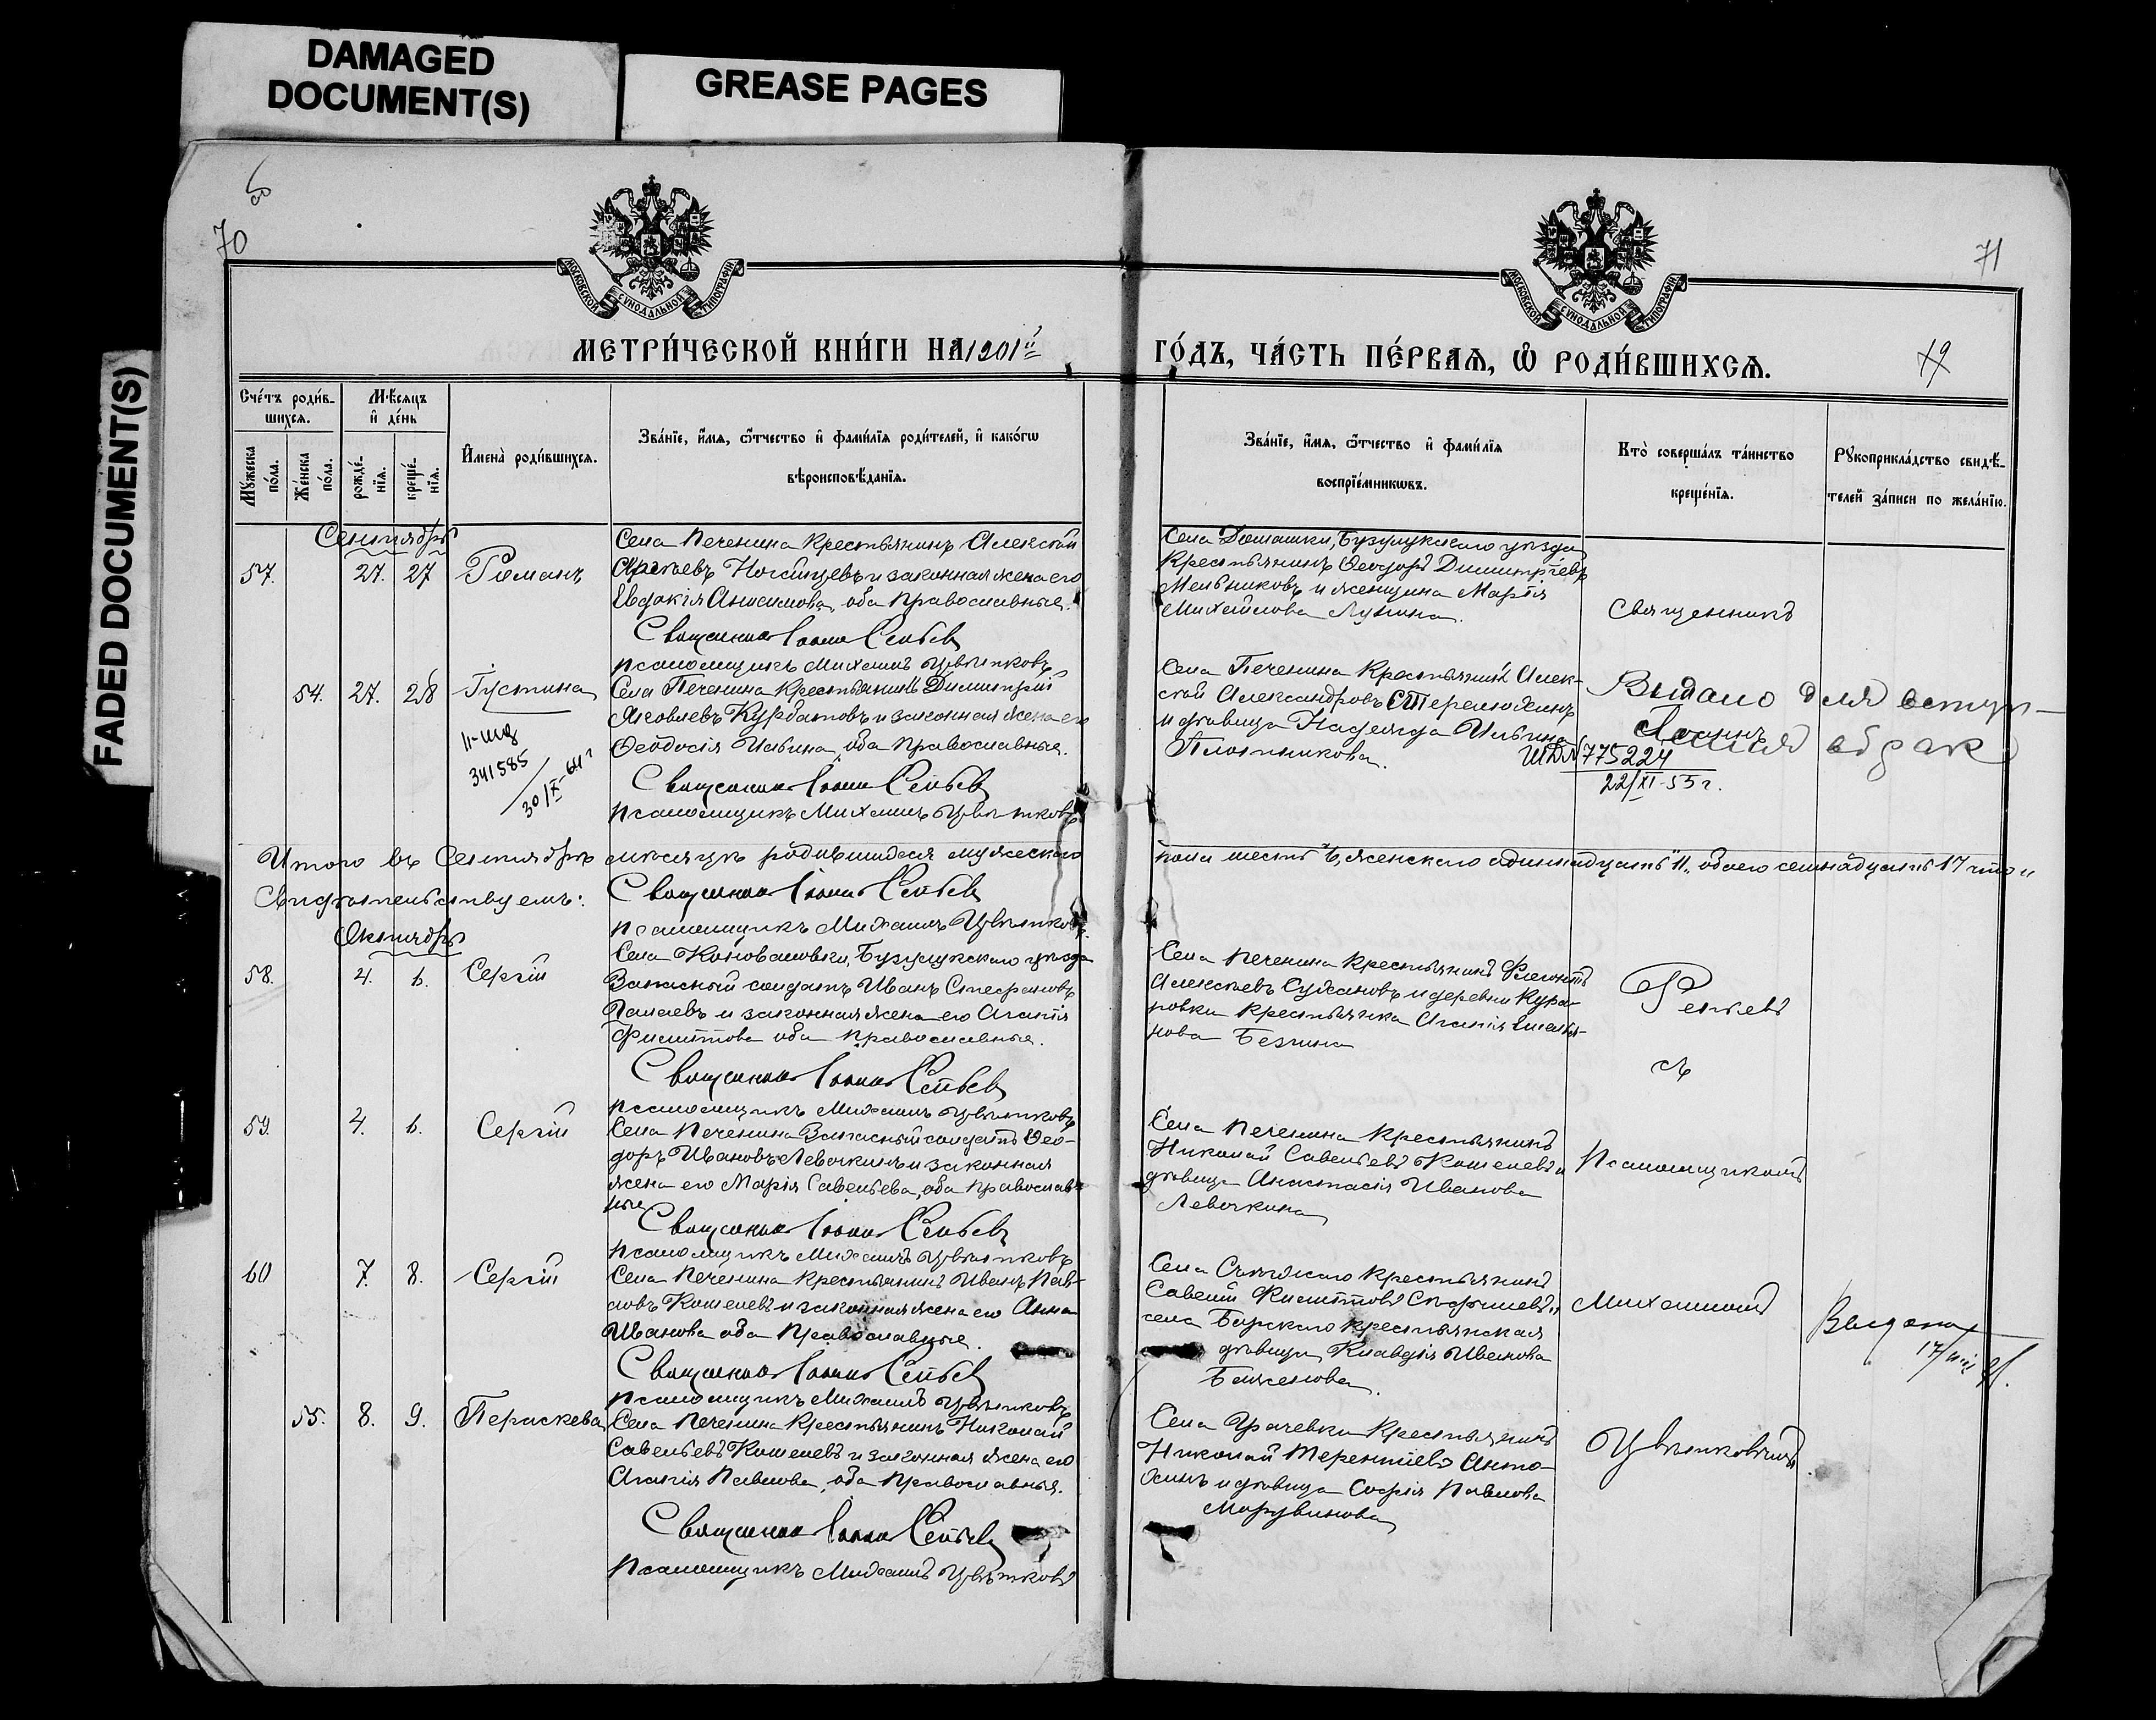 DAMAGED
DOCUMENT(S)
GREASE PAGES
FADED DOCUMENT(S)
70
71
МОСКОВСКОЙ СѴНОДАЛЬНОЙ ТИПОГРАФІИ
МОСКОВСКОЙ СѴНОДАЛЬНОЙ ТИПОГРАФІИ
МЕТРИ́ЧЕСКОЙ КНИ́ГИ НА 1901й
ГО́ДЪ, ЧА́СТЬ ПЕ́РВАѦ, Ѡ҆ РОДИ́ВШИХСѦ.
Сче́тъ роди́в-
шихсѧ.
Мѣ́сѧцъ
и҆ де́нь
Мꙋ́жеска
по́ла.
Же́нска
по́ла.
рожде́-
нїѧ.
креще́-
нїѧ.
И҆мена̀ роди́вшихсѧ.
Зва́нїе, и҆́мѧ, ѻ҆́тчество и҆ фами́лїѧ роди́телей, и҆ како́гѡ
вѣроисповѣ́данїѧ.
Зва́нїе, и҆́мѧ, ѻ҆́тчество и҆ фами́лїѧ
воспрїе́мникѡвъ.
Кто̀ соверша́лъ та́инство
креще́нїѧ.
Рꙋкоприкла́дство свидѣ́-
телей за́писи по жела́нїю.
Сентябрь
57.
27. 27
Романъ
Села Печенина крестьянинъ Алексѣй
и законная жена его
Евдокія Анисимова, оба православные.
Священникъ Іоаннъ
псаломщикъ Михаилъ Цвѣтковъ
Села Домашки, Бузулукскаго уѣзда
крестьянинъ Ѳеодоръ Димитріевъ
Мельниковъ и женщина Марія
Михайлова Лунина.
Священникъ
54. 27. 28
Іустина
II-шд
341585
30/XI-64 г
Села Печенина крестьянинъ Димитрій
Яковлевъ Курбатовъ и законная жена его
Ѳеодосія Ильина, оба православные.
Священникъ Іоаннъ
псаломщикъ Михаилъ Цвѣтковъ
Села Печенина крестьянинъ Алек-
сѣй Александровъ
и дѣвица Надежда Ильина
Плотникова.
Выдано для вступ-
Іоаннъ
в брак
№ 775224
22/XI-55 г.
Итого въ Сентябрѣ мѣсяцѣ родившихся мужескаго
пола шесть 6, женскаго одиннадцать 11, обоего семнадцать 17 что и
Свидѣтельствуемъ:
Священникъ Іоаннъ
псаломщикъ Михаилъ Цвѣтковъ.
Октябрь
58.
4. 6.
Сергій
Села Коноваловки, Бузулукскаго уѣзда
Запасный солдатъ Иванъ Стефановъ
и законная жена его Агапія
Филиппова оба православные.
Священникъ Іоаннъ
псаломщикъ Михаилъ Цвѣтковъ
Села Печенина крестьянинъ Флегонтъ
Алексѣевъ Сухановъ и деревни
крестьянка Агапія Емелья-
нова
съ
59.
4. 6.
Сергій
Села Печенина Запасный солдатъ Ѳео-
доръ Ивановъ Левочкинъ и законная
жена его Марія Савельева, оба православ-
ные
Священникъ Іоаннъ
псаломщикъ Михаилъ Цвѣтковъ
Села Печенина крестьянинъ
Николай Савельевъ Кошелевъ и
дѣвица Анастасія Иванова
Левочкина
Псаломщикомъ
60
7. 8.
Сергій
Села Печенина крестьянинъ Иванъ Пав-
ловъ Кошелевъ и законная жена его Анна
Иванова оба православные.
Священникъ Іоаннъ
псаломщикъ Михаилъ Цвѣтковъ
Села Съѣзжаго крестьянинъ
Савелій Филипповъ
села Борскаго крестьянская
дѣвица Клавдія Иванова
Баженова.
Михаиломъ
55. 8. 9.
Параскева
Села Печенина крестьянинъ Николай
Савельевъ Кошелевъ и законная жена его
Агапія Павлова, оба православные.
Священникъ Іоаннъ
Псаломщикъ Михаилъ Цвѣтковъ
Села Грачевки крестьянинъ
Николай Терентіевъ Анто-
хинъ и дѣвица Софія Павлова
Мордвинова
Цвѣтковымъ.